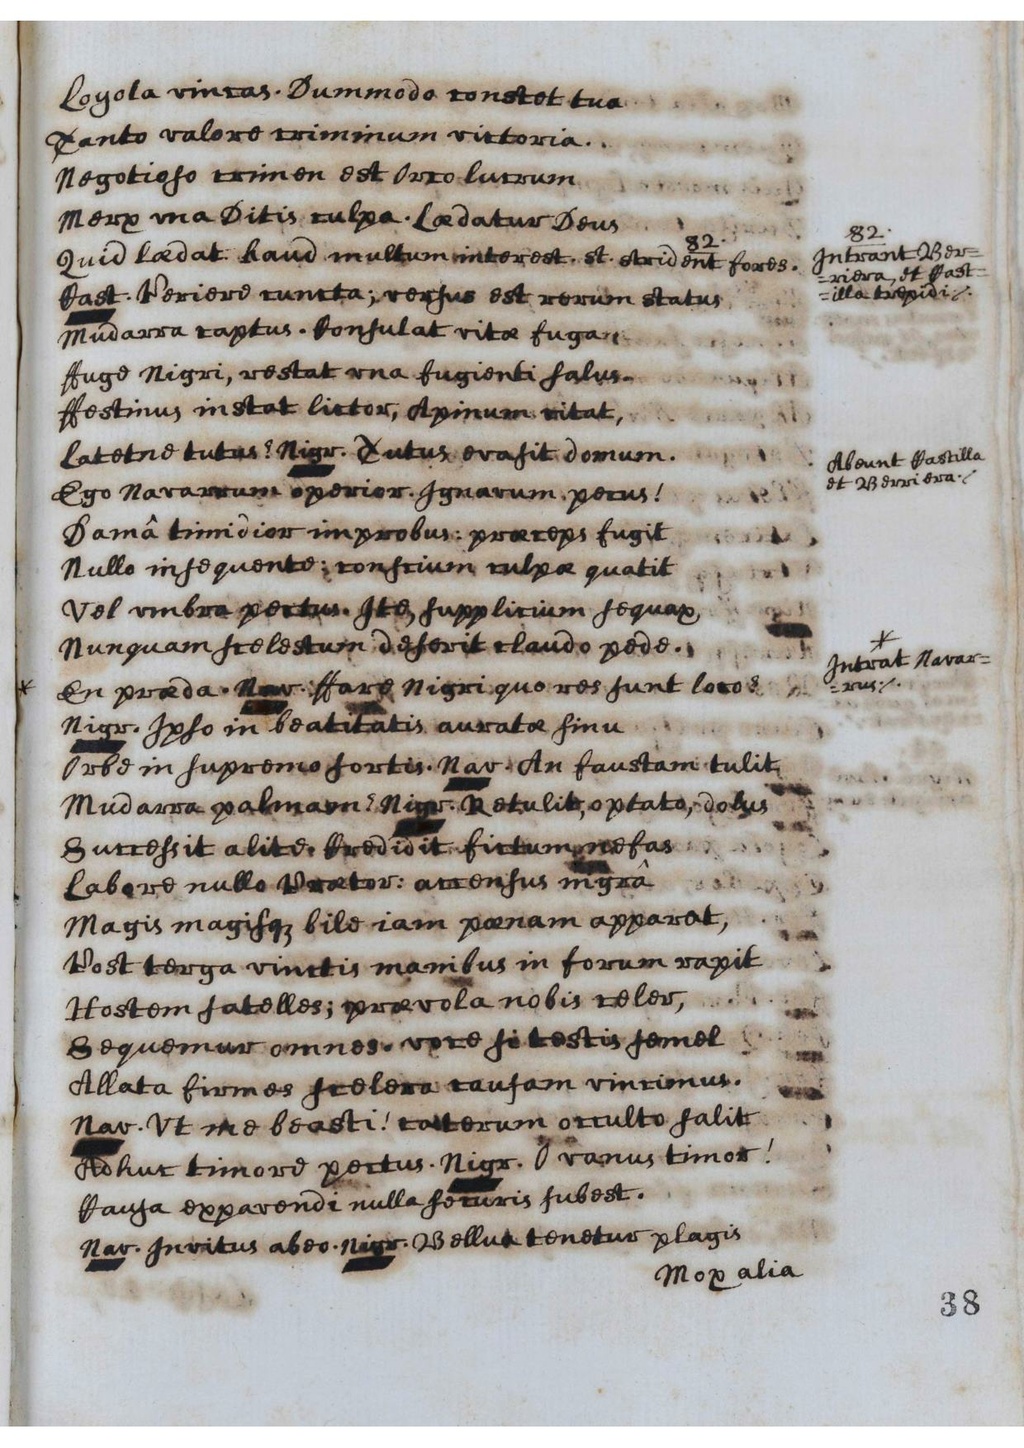 Loyola vincas. Dummodo constet tua
Tanto valore criminum victoria.
Negotioso crimen est Orco lucrum
Merx vna Ditis culpa. Lædatur Deus
Quid lædat haud multum interest. st. strident fores.
82.
82.
Intrant Ber=
=riera, et Cast=
=illa trepidi
Cast. Periere cuncta; versus est rerum status
Mudarra captus. Consulat vitæ fuga
ffuge Nigri, restat vna fugienti salus.
ffestinus instat lictor, Apinum citat,
Latetne tutus? Nigr. Tutus evasit domum.
Abeunt Castilla
et Berriera
Ego Navarrum operior. Ignavum pecus!
Damâ timidior improbus: præceps fugit
Nullo insequente; conscium culpæ quatit
Vel vmbra pectus. Ite, supplicium sequax
Nunquam scelestum deserit claudo pede.
*
Intrat Navar=
=rus
* En præda. Nav. ffare Nigri quo res sunt loco?
Nigr. Ipso in beatitatis auratæ sinu
Orbe in supremo sortis. Nav. An faustam tulit
Mudarra palmam? Nigr. Retulit, optato, dolus
Successit alite. Credidit fictum nefas
Labore nullo Prætor: accensus nigrâ
Magis magisq; bile iam pœnam apparat,
Post terga vinctis manibus in forum rapit
Hostem satelles; prævola nobis celer,
Sequemur omnes. voce si testis semel
Allata firmes scelera causam vincimus.
Nav. Vt me beasti! cætterum occulto salit
Adhuc timore pectus. Nigr. O vanus timor!
Causa expavendi nulla securis subest.
Nav. Invitus abeo. Nigr. Bellua tenetur plagis
Mox alia
38